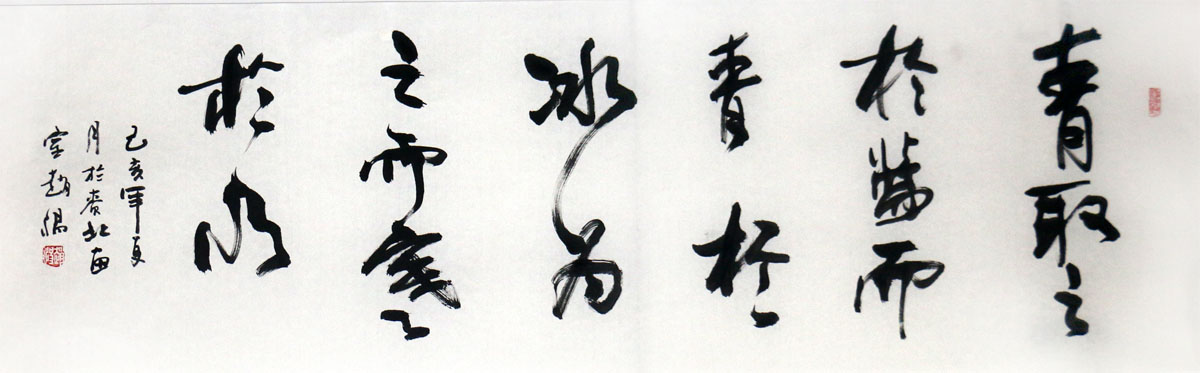 青取之
於藍而
青於
冰為
之而寒
於水
己亥年夏
月於北画
室趙